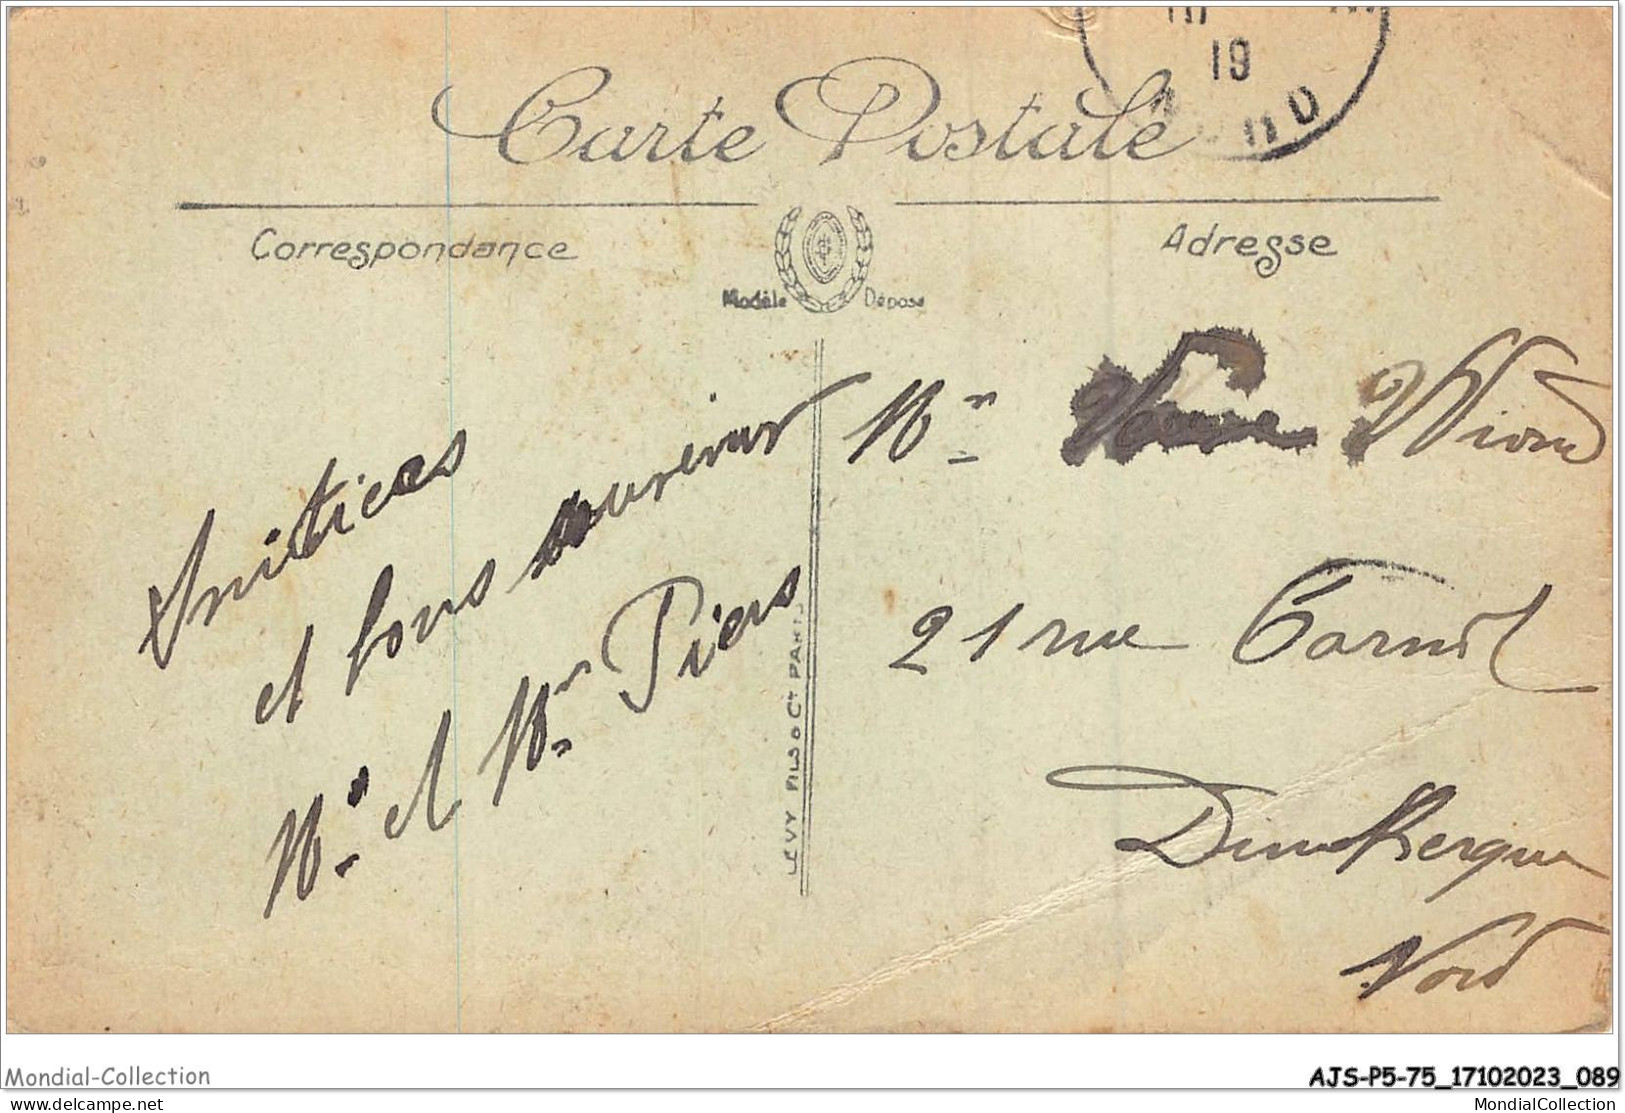 19
Carte Postale
Correspondance
Adresse
Modèle Déposé
Amitiées
et bons souvenirs
Mr et Mm Piers
LÉVY FILS & Cie PARIS
Mm
21 rue Carnot
Dunkerque
Nord
Mondial-Collection
AJS-P5-75_17102023_089
delcampe.net
MondialCollection